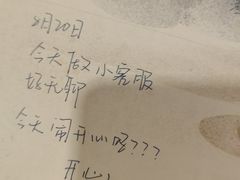 8月20日
今天做小客服
好无聊
今天闹开心吗???
开心!